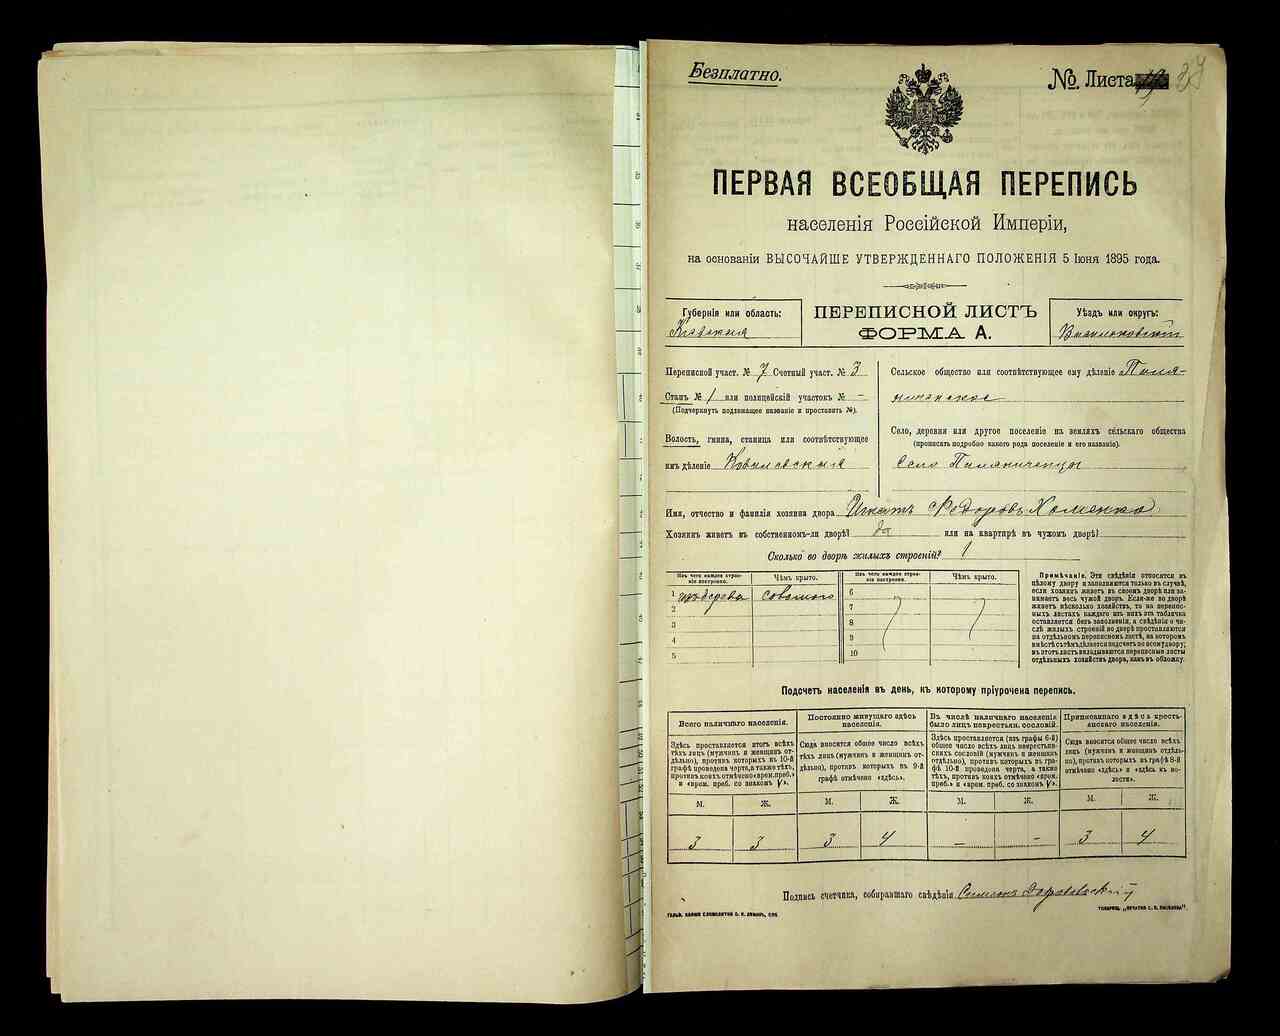 Безплатно.
№ Листа
ПЕРВАЯ ВСЕОБЩАЯ ПЕРЕПИСЬ
населенія Россійской Имперіи,
на основаніи ВЫСОЧАЙШЕ УТВЕРЖДЕННАГО ПОЛОЖЕНІЯ 5 Іюня 1895 года.
Губернія или область:
Кіевская
ПЕРЕПИСНОЙ ЛИСТЪ
ФОРМА А.
Уѣздъ или округъ:
Переписной участ. № 7 Счетный участ. № 3
Станъ № 1 или полицейскій участокъ № -
(Подчеркнуть подлежащее названіе и проставить №).
Волость, гмина, станица или соотвѣтствующее
имъ дѣленіе
Сельское общество или соотвѣтствующее ему дѣленіе
Село, деревня или другое поселеніе на земляхъ сельскаго общества
(прописать подробно какого рода поселеніе и его названіе).
Село Поляниченцы
Имя, отчество и фамилія хозяина двора Игнатъ Федоровъ Хоменко
Хозяинъ живетъ въ собственномъ-ли дворѣ? да или на квартирѣ въ чужомъ дворѣ?
Сколько во дворѣ жилыхъ строеній? 1
Изъ чего каждое строеніе построено.
Чѣмъ крыто.
Изъ чего каждое строеніе построено.
Чѣмъ крыто.
1 изъ дерева соломою
2
3
4
5
6
7
8
9
10
Примѣчаніе. Эти свѣдѣнія относятся къ
цѣлому двору и заполняются только въ случаѣ,
если хозяинъ живетъ въ своемъ дворѣ или занимаетъ
весь чужой дворъ. Если-же во дворѣ
живетъ нѣсколько хозяйствъ, то на переписныхъ
листахъ каждаго изъ нихъ эта табличка
оставляется безъ заполненія, а свѣдѣнія о числѣ
жилыхъ строеній во дворѣ проставляются
на отдѣльномъ переписномъ листѣ, на которомъ
вмѣстѣ съ тѣмъ дѣлается подсчетъ по всему двору;
въ этотъ листъ вкладываются переписные листы
отдѣльныхъ хозяйствъ двора, какъ въ обложку.
Подсчетъ населенія въ день, къ которому пріурочена перепись.
Всего наличнаго населенія.
Здѣсь проставляется итогъ всѣхъ
тѣхъ лицъ (мужчинъ и женщинъ отдѣльно),
противъ которыхъ въ 10-й
графѣ проведена черта, а также тѣхъ,
противъ коихъ отмѣчено «врем. преб.»
и «врем. преб. со знакомъ V».
Постоянно живущаго здѣсь
населенія.
Сюда вносится общее число всѣхъ
тѣхъ лицъ (мужчинъ и женщинъ отдѣльно),
противъ которыхъ въ 9-й
графѣ отмѣчено «здѣсь».
Въ числѣ наличнаго населенія
было лицъ некрестьян. сословій.
Здѣсь проставляется (изъ графы 6-й)
общее число всѣхъ лицъ некрестьянскихъ
сословій (мужчинъ и женщинъ
отдѣльно), противъ которыхъ въ графѣ
10-й проведена черта, а также
тѣхъ, противъ коихъ отмѣчено «врем.
преб.» и «врем. преб. со знакомъ V».
Приписаннаго здѣсь крестьянскаго
населенія.
Сюда вносится общее число всѣхъ
лицъ (мужчинъ и женщинъ отдѣльно),
противъ которыхъ въ графѣ 8-й
отмѣчено «здѣсь» и «здѣсь къ волости».
М. Ж. М. Ж. М. Ж. М. Ж.
3 3 3 4 - - 3 4
Подпись счетчика, собиравшаго свѣдѣнія